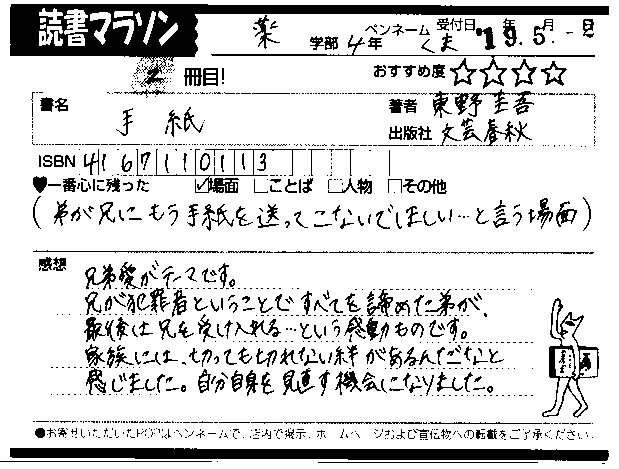 読書マラソン
薬 学部 4年 ペンネーム くま 受付日 '19.5.-2 年 月 日
2 冊目! おすすめ度 ☆☆☆☆
書名 手紙
著者 東野圭吾
出版社 文芸春秋
ISBN 4167110113
♥一番心に残った ☑場面 □ことば □人物 □その他
(弟が兄にもう手紙を送ってこないでほしい…と言う場面)
感想
兄弟愛がテーマです。
兄が犯罪者ということですべてを諦めた弟が、
最後は兄を受け入れる…という感動ものです。
家族には、切っても切れない絆があるんだなと
感じました。自分自身を見直す機会になりました。
●お寄せいただいたPOPはペンネームで、店内で掲示、ホームページおよび宣伝物への転載をご了承ください。